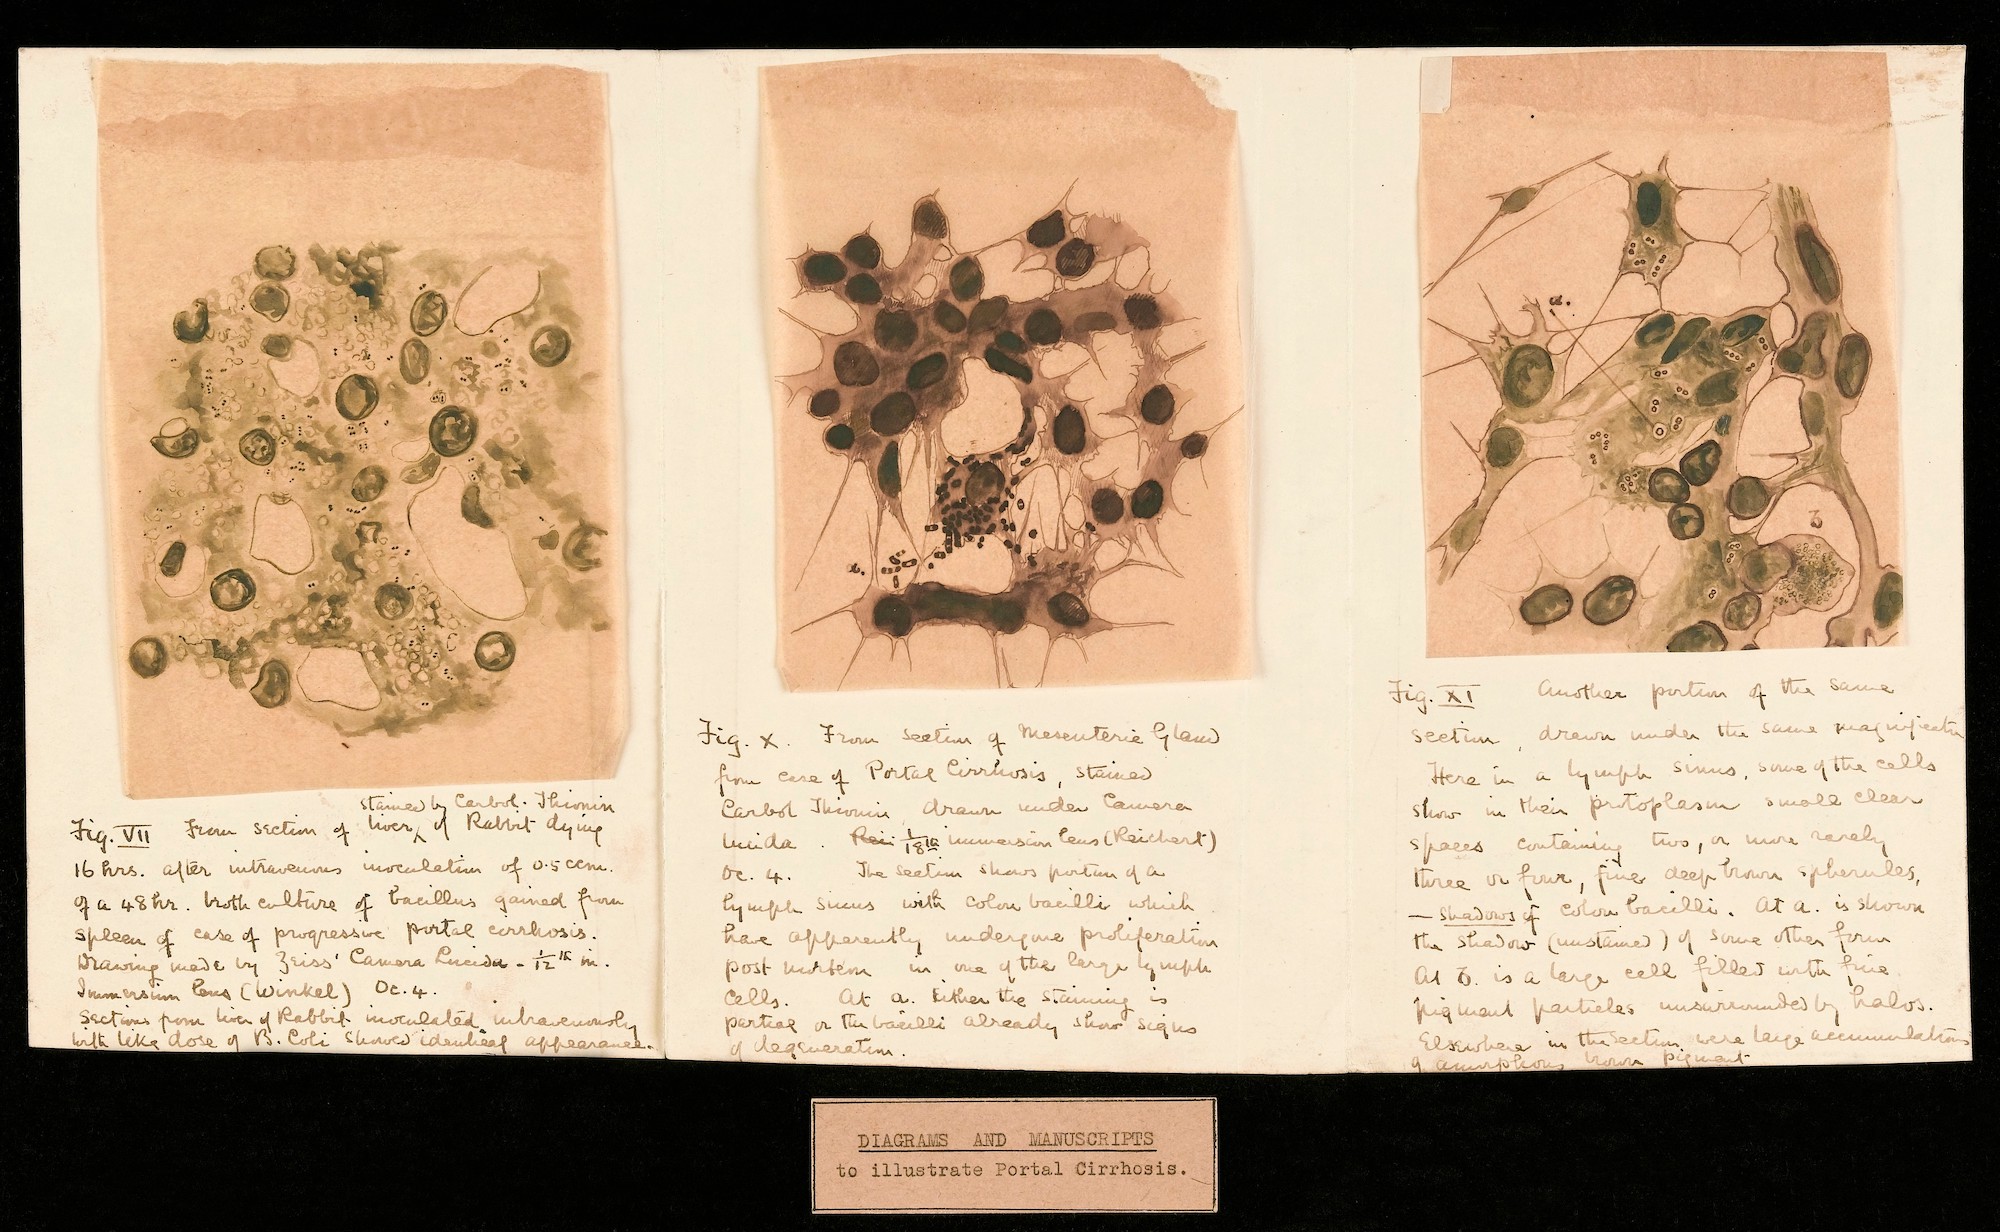 a.
a.
b
stained by Carbol. Thionin
Fig. VII From section of liver, of Rabbit dying
16 hrs. after intravenous inoculation of 0.5 ccm.
of a 48 hr. broth culture of bacillus gained from
spleen of case of progressive portal cirrhosis.
Drawing made by Zeiss' Camera Lucida - 1/12th in.
Immersion lens (Winkel) Oc. 4.
Sections from liver of Rabbit inoculated intravenously
with like dose of B. Coli showed identical appearance.
Fig. X. From section of Mesenteric Gland
from case of Portal Cirrhosis, stained
Carbol Thionin, drawn under Camera
lucida. Rei 1/18th immersion lens (Reichert)
Oc. 4. The section shows portion of a
lymph sinus with colon bacilli which
have apparently undergone proliferation
post mortem in one of the large lymph
cells. At a. Either the staining is
partial or the bacilli already show signs
of degeneration.
Fig. XI Another portion of the same
section, drawn under the same magnification
Here in a lymph sinus, some of the cells
show in their protoplasm small clear
spaces containing two, or more rarely
three or four, fine deep brown spherules,
— shadows of colon bacilli. At a. is shown
the shadow (unstained) of some other form
At b. is a large cell filled with fine
pigment particles unsurrounded by halos.
Elsewhere in the section were large accumulations
of amorphous brown pigment
DIAGRAMS AND MANUSCRIPTS
to illustrate Portal Cirrhosis.